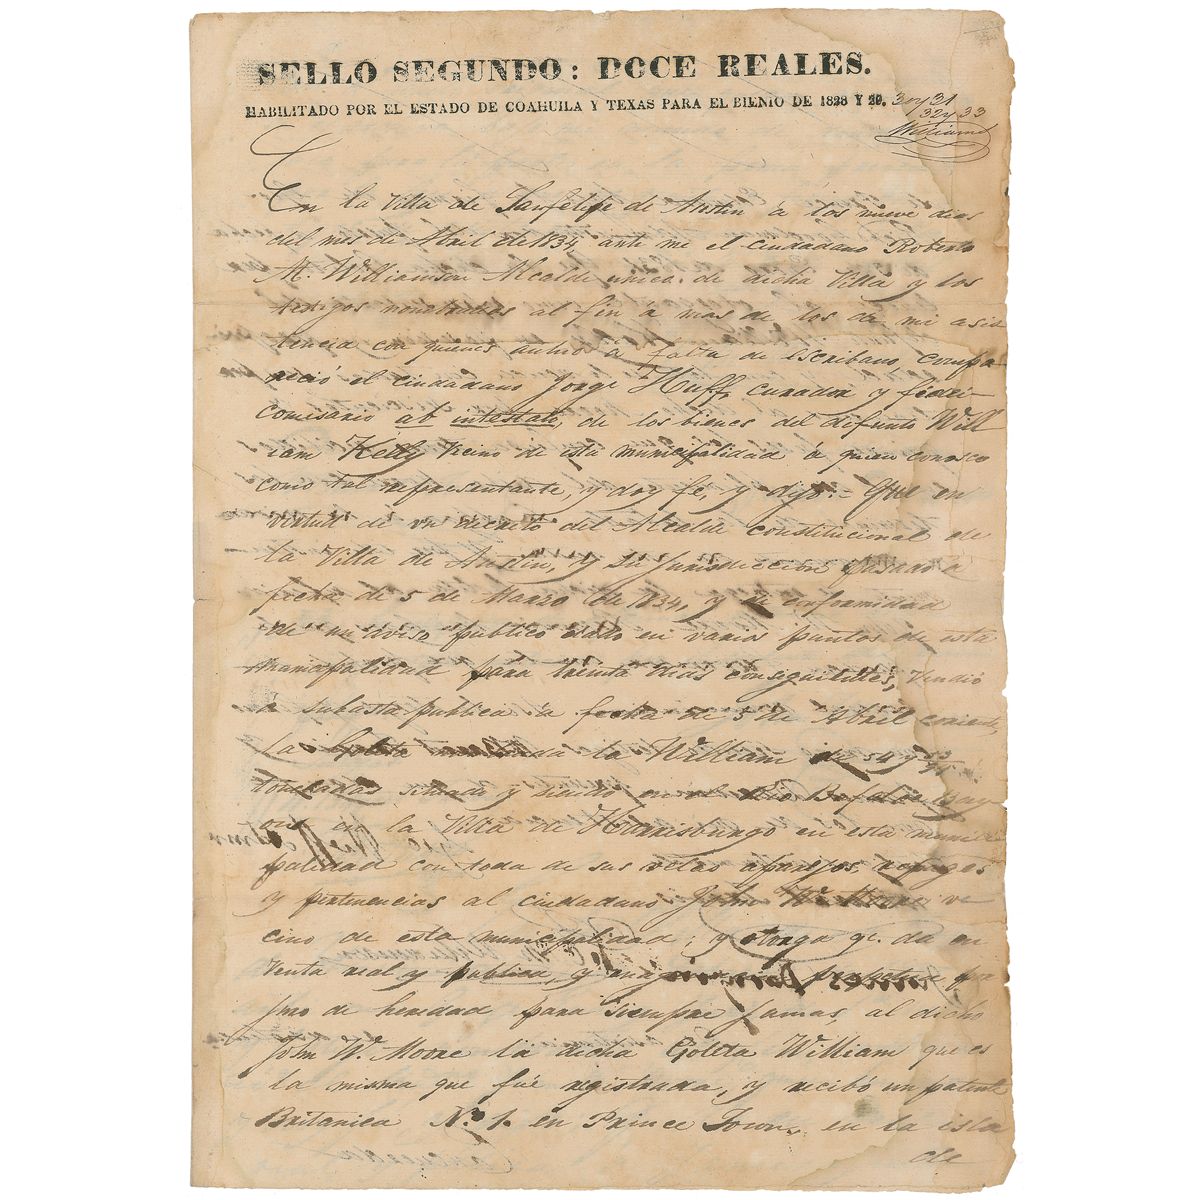 SELLO SEGUNDO: DOCE REALES.
HABILITADO POR EL ESTADO DE COAHUILA Y TEXAS PARA EL BIENIO DE 1828 Y 29. 30 y 31
32 y 33
Williams
En la Villa de Sanfelipe de Austin á los nueve dias
del mes de Abril de 1834, ante mi el ciudadano Roberto
M. Williamson Alcalde unico de dicha Villa y los
testigos nombrados al fin á mas de los de mi asis
tencia con quienes actuo á falta de escribano, compa
reció el ciudadano Jorge Huff, curador y fidei
comisario ab intestato, de los bienes del difunto Will
iam Kelly vicino de esta municipalidad á quien conosco
como tal representante, y doy fe, y dijo: Que en
virtud de un decreto del Alcalde constitucional de
la Villa de Austin, y su Jurisdiccion pasado á
fecha de 5 de Marzo de 1834, y en conformidad
de un aviso publico dado en varios puntos de esta
municipalidad para trienta dias consiguientes, vendió
á subasta publica á fecha de 5 de Abril coriente,
la Goleta nombrada la William de 54 y
toneladas situada y siendo en el Rio Bofalo Bay
ou en la Villa de Harrisburgo en esta munici
palidad con toda de sus velas aparejos, ropages
y pertinencias al ciudadano John W. Moore ve
cino de esta municipalidad; y otorga qe. da en
venta real y publica, y enagenacion perpetua por
juro de heridad para siempre jamas, al dicho
John W. Moore la dicha Goleta William que es
la misma que fué registrada, y recibó un patente
Britanica No. 1. en Prince Town, en la isla
de